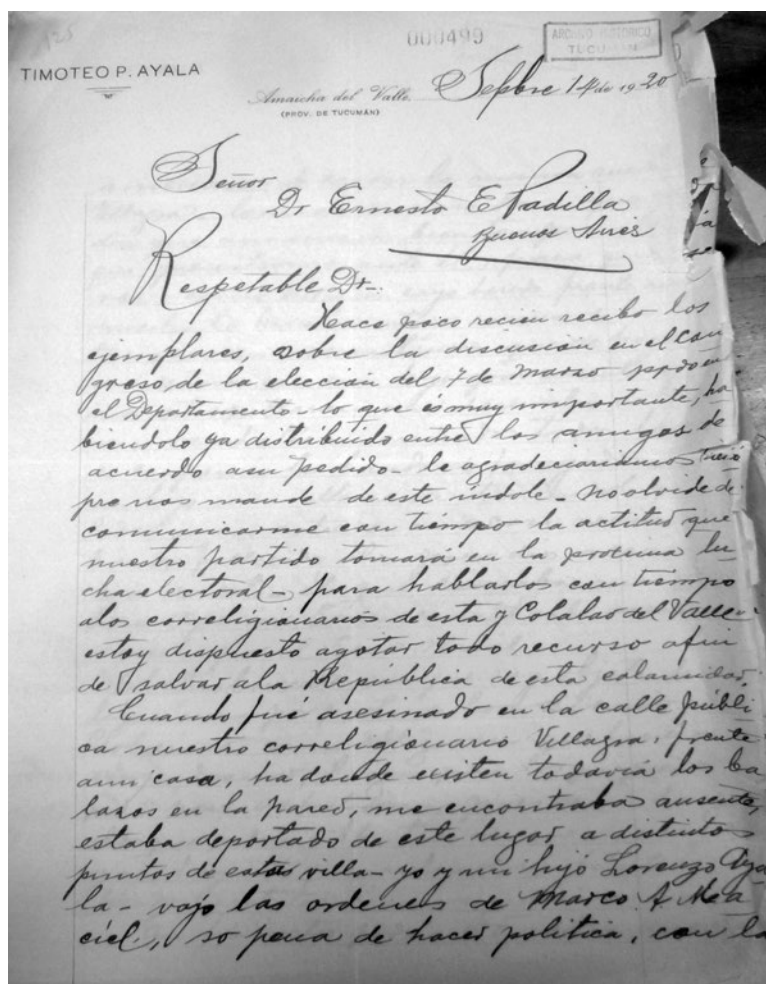 125
000499
ARCHIVO HISTORICO
TUCUMAN
TIMOTEO P. AYALA
Amaicha del Valle, Sepbre 14 de 1920
(PROV. DE TUCUMÁN)
Señor
Dr Ernesto E Padilla
Buenos Aires
Respetable Dr-.
Hace poco recien recibo los
ejemplares, sobre la discusion en el con
greso de la eleccion del 7 de Marzo ppdo en
el Departamento - lo que es muy importante, ha
biendolo ya distribuido entre los amigos de
acuerdo asu pedido - le agradeciariamos siem
pre nos mande de este indole - no olvide de
comunicarme con tiempo la actitud que
nuestro partido tomará en la procima lu
cha electoral - para hablarlos con tiempo
alos correligionarios de esta y Colalao del Valle -
estoy dispuesto agotar todo recurso afin
de salvar ala República de esta calamidad.
Cuando fué asesinado en la calle públi
ca nuestro correligionario Villagra, frente
ami casa, ha donde existen todavia los ba
lazos en la pared, me encontraba ausente,
estaba deportado de este lugar a distintos
puntos de esta villa - yo y mi hijo Lorenzo Aya
la - vajo las ordenes de Marco A Mea
ciel, so pena de hacer politica, con la